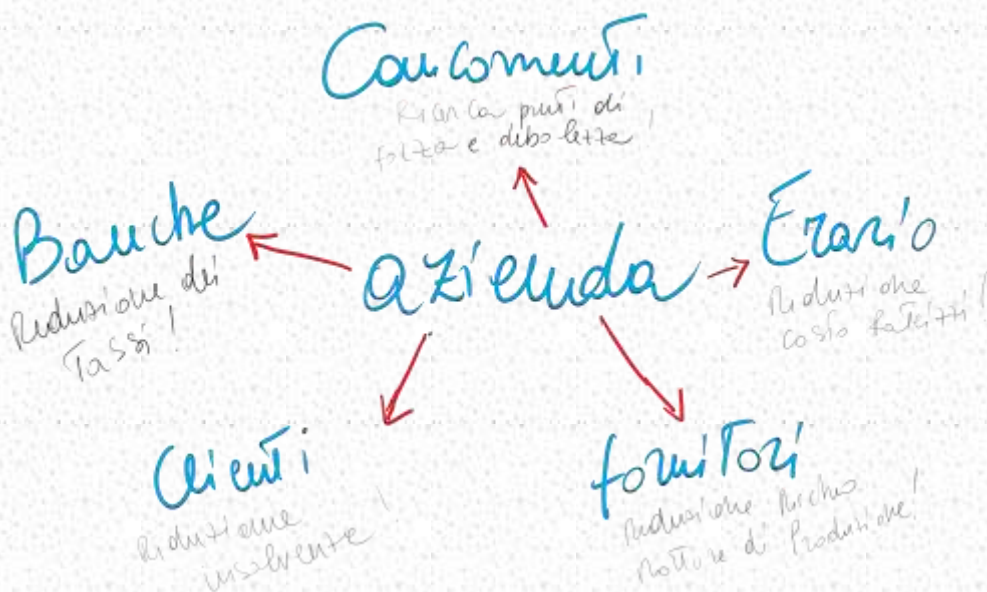 Concorrenti
Ricerca punti di
forza e debolezza!
Banche
Riduzione dei
Tassi!
azienda
Erario
Riduzione
costo
Clienti
Riduzione
insolvenze!
fornitori
Riduzione Rischio
Rotture di Produzione!